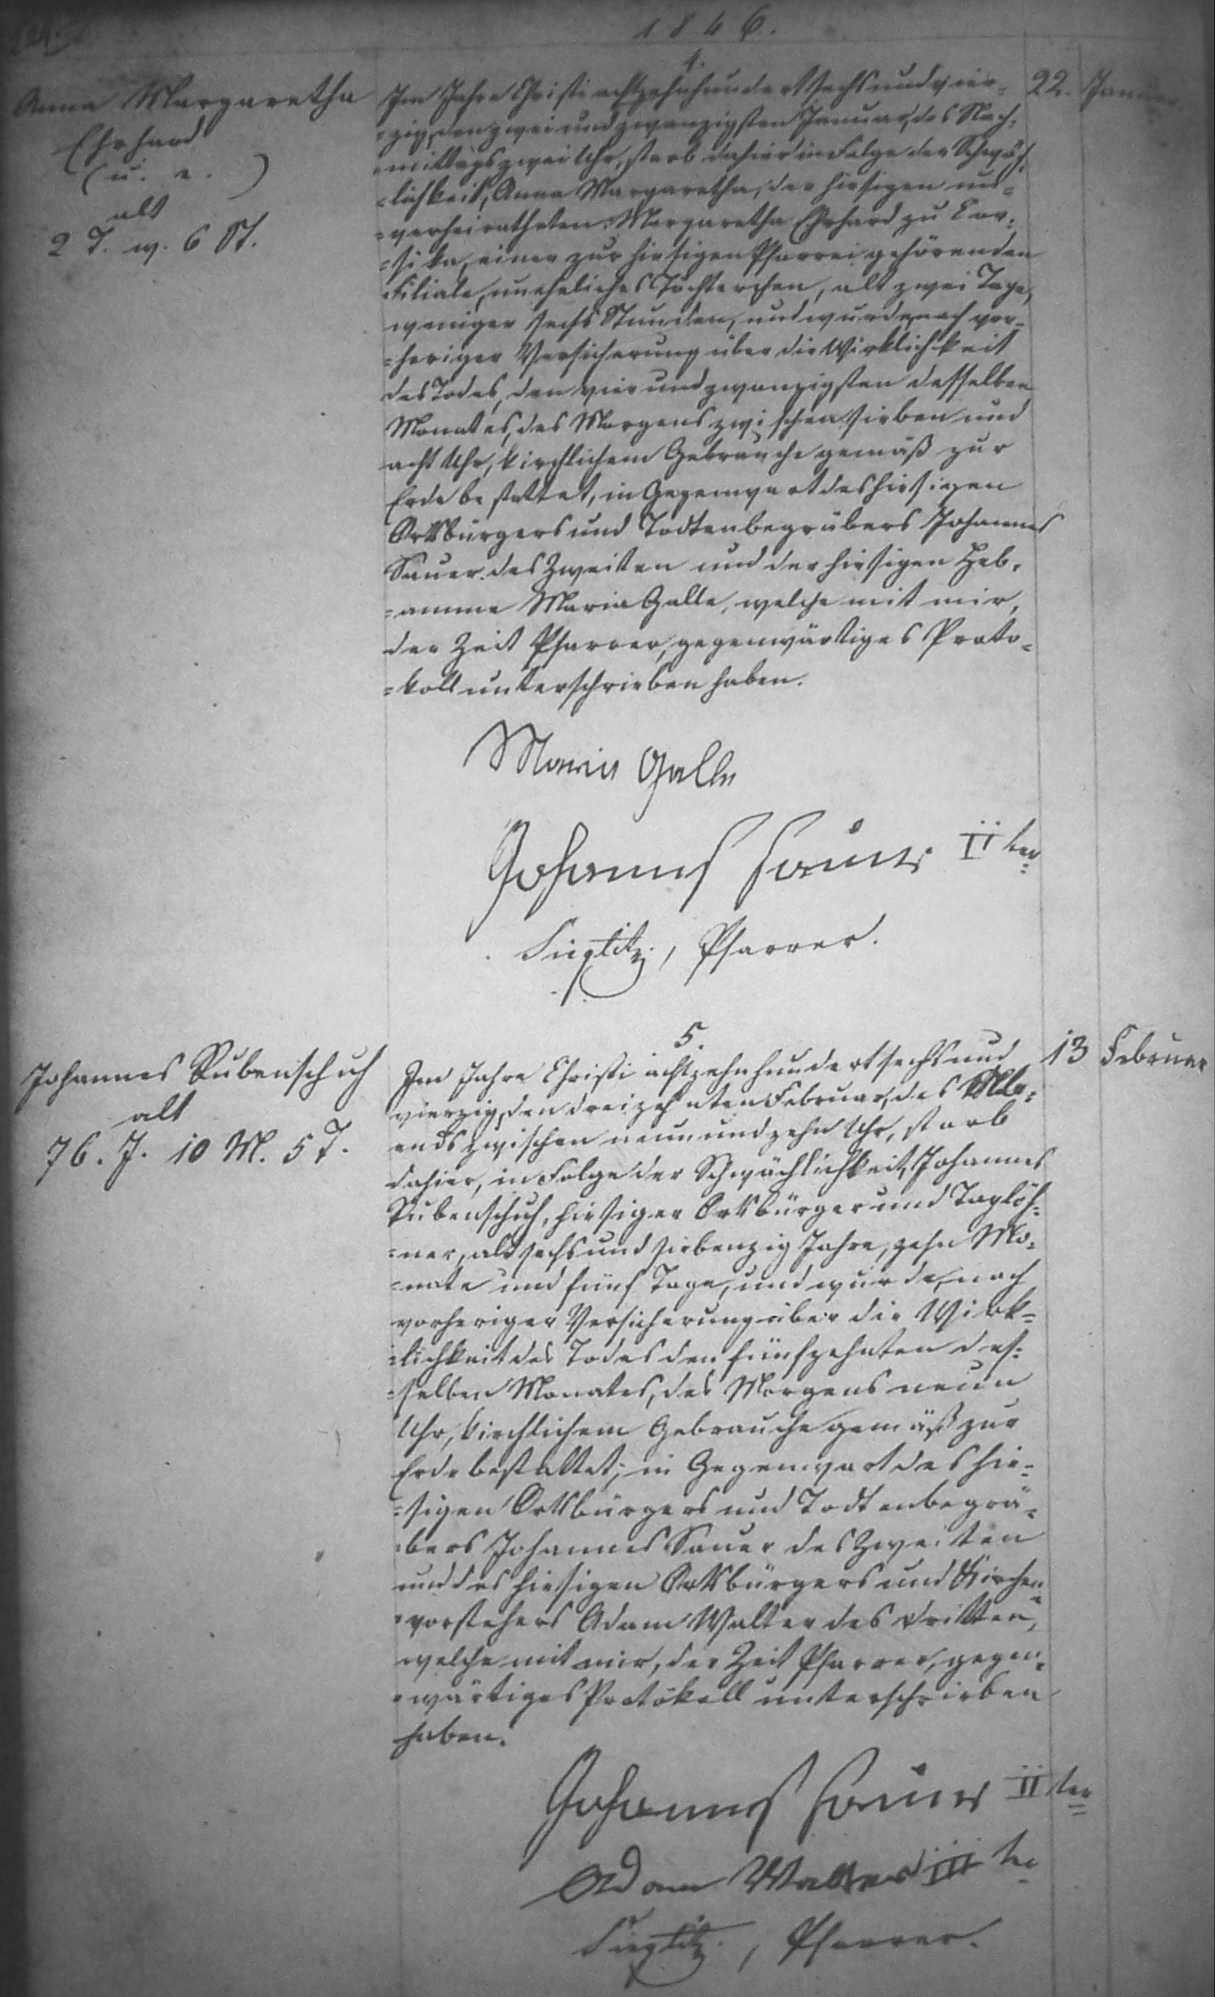 1846.
4.
Anna Margaretha
Ehrhard
(u. e.)
alt
2 T. w. 6 St.
22. Januar
Im Jahre Christi achtzehnhundert sechs und vier-
=zig, den zwei und zwanzigsten Januar, des Nach-
=mittags zwei Uhr, starb dahier in Folge der Schwäch-
=lichkeit, Anna Margaretha, der hiesigen un-
=verheiratheten Margaretha Ehrhard zu Cor-
=sika, einer zur hiesigen Pfarrei gehörenden
Filiale, uneheliches Töchterchen, alt zwei Tage,
weniger sechs Stunden, und wurde, nach vor-
=heriger Versicherung über die Wirklichkeit
des Todes, den vier und zwanzigsten desselben
Monates, des Morgens zwischen sieben und
acht Uhr, kirchlichem Gebrauche gemäß zur
Erde bestattet, in Gegenwart des hiesigen
Ortsbürgers und Todtenbegräbers Johannes
Sauer des Zweiten und der hiesigen Heb-
=amme Maria Galle, welche mit mir,
der Zeit Pfarrer, gegenwärtiges Proto-
=koll unterschrieben haben.
Maria Galle
Johannes Sauer II ter
Pfarrer.
5.
Johannes Rubenschuh
alt
76. J. 10 M. 5 T.
13 Februar
Im Jahre Christi achtzehnhundert sechs und
vierzig, den dreizehnten Februar, des Ab-
ends zwischen neun und zehn Uhr, starb
dahier, in Folge der Schwächlichkeit, Johannes
Rubenschuh, hiesiger Ortsbürger und Taglöh-
=ner, alt sechs und siebenzig Jahre, zehn Mo-
=nate und fünf Tage, und wurde, nach
vorheriger Versicherung über die Wirk-
=lichkeit des Todes den fünfzehnten des-
=selben Monates, des Morgens neun
Uhr, kirchlichem Gebrauche gemäß zur
Erde bestattet, in Gegenwart des hie-
=sigen Ortsbürgers und Todtenbegrä-
=bers Johannes Sauer des Zweiten
und des hiesigen Ortsbürgers und Kirchen-
=vorstehers Adam Walter des Dritten,
welche mit mir, der Zeit Pfarrer, gegen-
=wärtiges Protokoll unterschrieben
haben.
Johannes Sauer II ter
Adam Walter III te
Pfarrer.